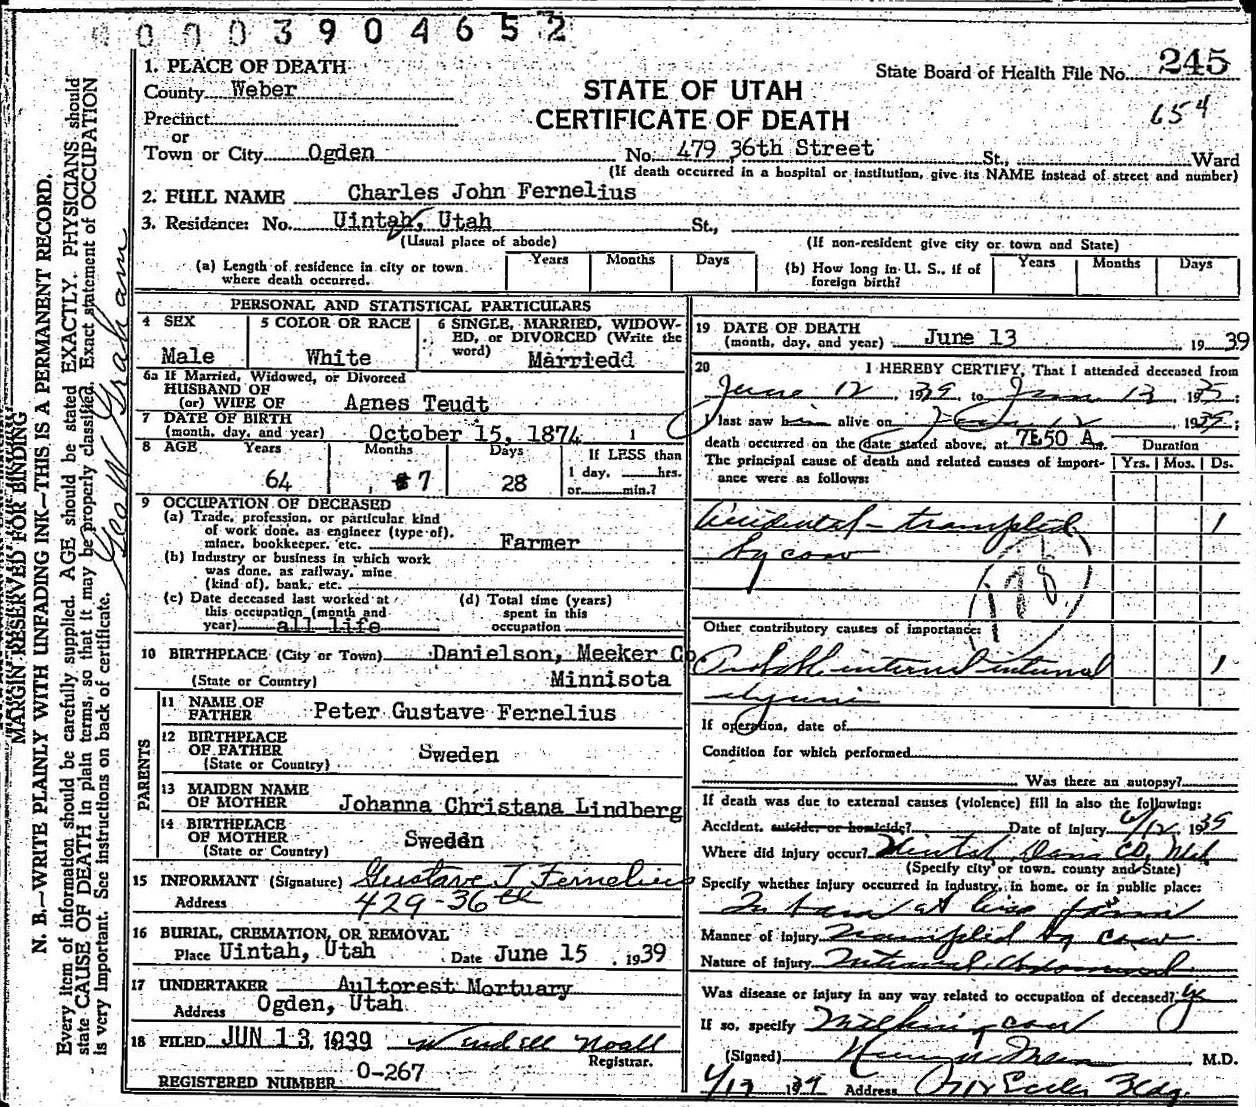 0003904652
State Board of Health File No. 245
654
1. PLACE OF DEATH
County Weber
STATE OF UTAH
CERTIFICATE OF DEATH
Precinct
or
Town or City Ogden No. 479 36th Street St., Ward
(If death occurred in a hospital or institution, give its NAME instead of street and number)
2. FULL NAME Charles John Fernelius
3. Residence: No. Uintah, Utah St.,
(Usual place of abode) (If non-resident give city or town and State)
(a) Length of residence in city or town where death occurred. Years Months Days
(b) How long in U. S., if of foreign birth? Years Months Days
PERSONAL AND STATISTICAL PARTICULARS
4 SEX Male
5 COLOR OR RACE White
6 SINGLE, MARRIED, WIDOWED, or DIVORCED (Write the word) Marriedd
6a If Married, Widowed, or Divorced
HUSBAND OF
(or) WIFE OF Agnes Teudt
7 DATE OF BIRTH
(month, day, and year) October 15, 1874
8 AGE Years 64 Months 7 Days 28 If LESS than 1 day, hrs. or min.?
9 OCCUPATION OF DECEASED
(a) Trade, profession, or particular kind
of work done, as engineer (type of),
miner, bookkeeper, etc. Farmer
(b) Industry or business in which work
was done, as railway, mine
(kind of), bank, etc.
(c) Date deceased last worked at
this occupation (month and
year) all life
(d) Total time (years)
spent in this
occupation
10 BIRTHPLACE (City or Town) Danielson, Meeker Co
(State or Country) Minnisota
PARENTS
11 NAME OF
FATHER Peter Gustave Fernelius
12 BIRTHPLACE
OF FATHER Sweden
(State or Country)
13 MAIDEN NAME
OF MOTHER Johanna Christana Lindberg
14 BIRTHPLACE
OF MOTHER Sweden
(State or Country)
15 INFORMANT (Signature) Gustave J Fernelius
Address 429-36th
16 BURIAL, CREMATION, OR REMOVAL
Place Uintah, Utah Date June 15, 1939
17 UNDERTAKER Aultorest Mortuary
Address Ogden, Utah
18 FILED JUN 13, 1939 Wendell Noall
Registrar.
REGISTERED NUMBER 0-267
19 DATE OF DEATH
(month, day, and year) June 13 1939
20 I HEREBY CERTIFY, That I attended deceased from
June 12, 1939 to June 13, 19
I last saw him alive on 12 1939;
death occurred on the date stated above, at 7:50 A. Duration
The principal cause of death and related causes of importance were as follows: Yrs. Mos. Ds.
Accidental - trampled 1
by cow
178
Other contributory causes of importance:
Probable internal internal 1
injurie
If operation, date of
Condition for which performed
Was there an autopsy?
If death was due to external causes (violence) fill in also the following:
Accident, suicide or homicide? Date of injury 6/12, 1939
Where did injury occur? Uintah Davis CO, Utah
(Specify city or town, county and State)
Specify whether injury occurred in industry, in home, or in public place:
In barn at his farm
Manner of injury Trampled by cow
Nature of injury Internal Abdominal
Was disease or injury in any way related to occupation of deceased? Yes
If so, specify Milking cow
(Signed) M.D.
39 Address Bldg.
MARGIN RESERVED FOR BINDING
N. B.—WRITE PLAINLY WITH UNFADING INK—THIS IS A PERMANENT RECORD.
Every item of information should be carefully supplied. AGE should be stated EXACTLY. PHYSICIANS should
state CAUSE OF DEATH in plain terms, so that it may be properly classified. Exact statement of OCCUPATION
is very important. See instructions on back of certificate.
Geo W Graham